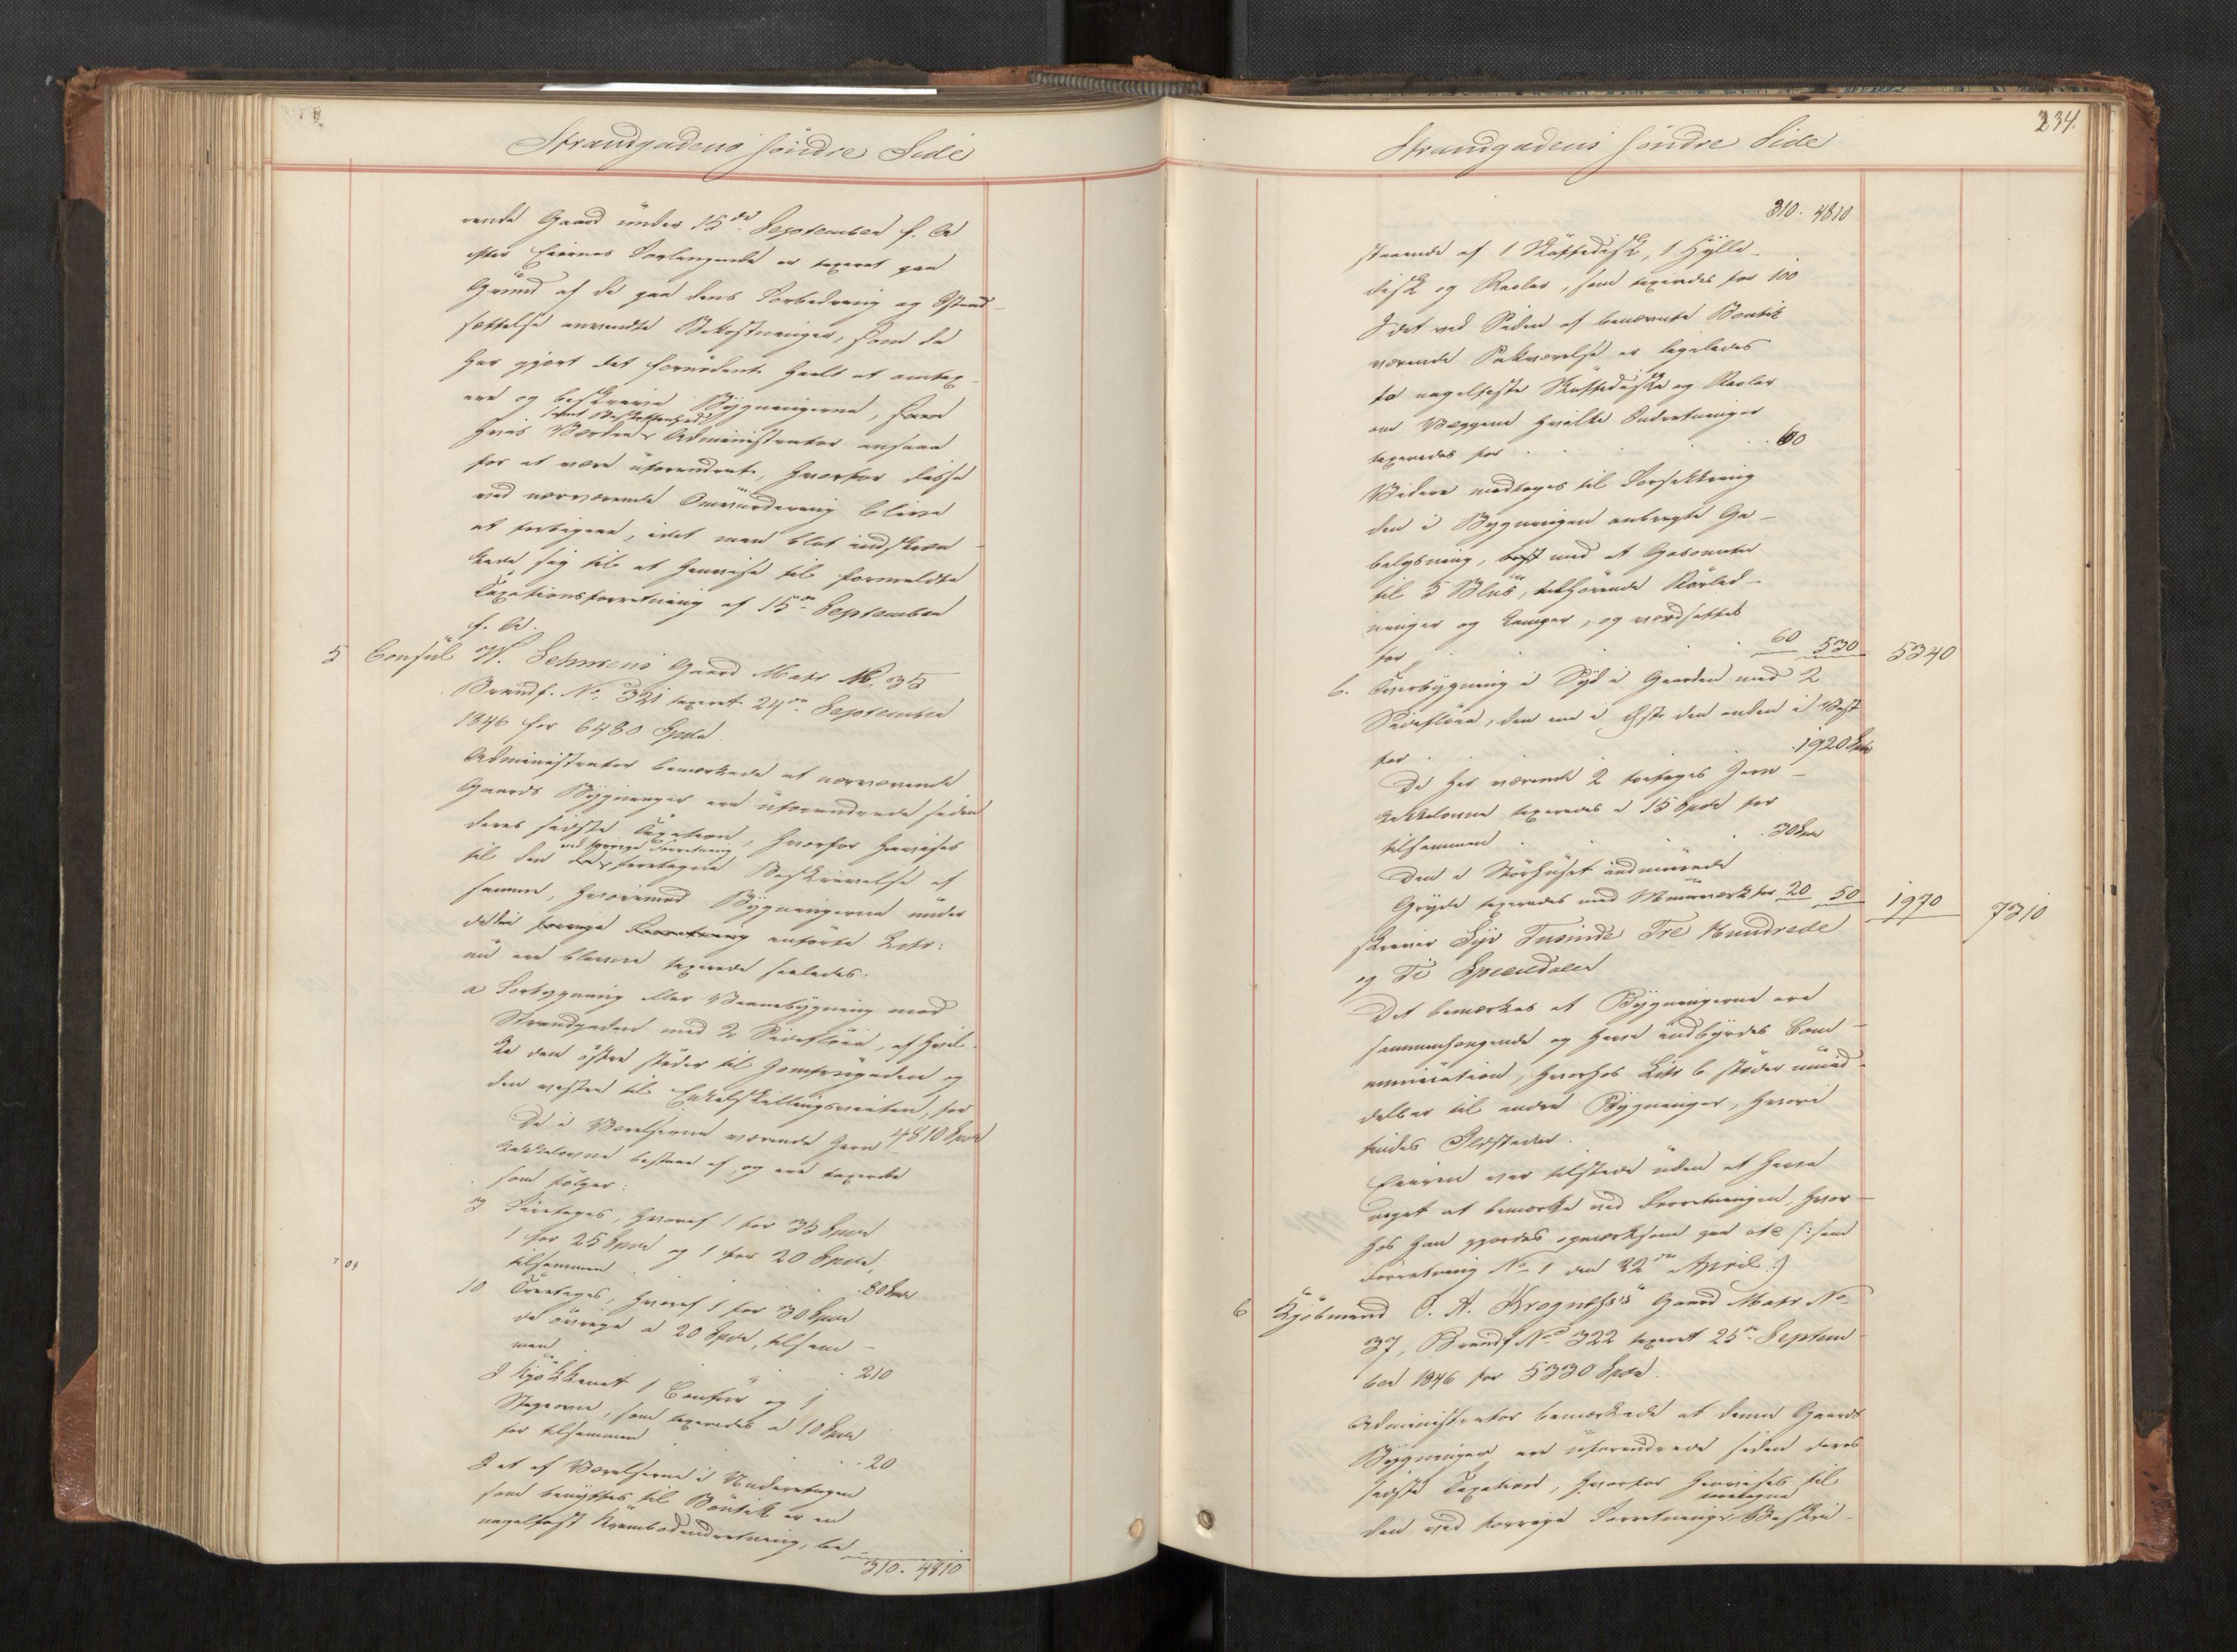 Strandgadens söndre Side
rende Gaard under 15de September f. A
efter Eierens Forlangende er taxeret paa
Grund af de paa dens Forbedring og Istand-
sættelse anvendte Bekostninger, som da
har gjort det fornødent heelt at omtax-
ere og beskrive Bygningerne,
samt Beskaffenhed
hvis Værdie Administrator ansaae
for at være uforandret, hvorfor disse
ved nærværende Omvurdering bleve
at forbigaae, idet man blot indskræn-
kede sig til at henvise til formeldte
Taxationsforretning af 15de September
f. A.
5 Consul W. Lehmens Gaard Matr No 35
Brandf. No 321 taxeret 24de September
1846 for 6480 Spdlr
Administrator bemærkede at nærværende
Gaards Bygninger ere uforandrede siden
deres sidste Taxation, hvorfor henvises
ved forrige Forretning
til den foretagne Beskrivelse af
samme, hvorimod Bygningerne under
forrige Forretning anførte Litr:
nu ere blevne taxerede saaledes:
a Forbygning eller Vaanebygning mod
Strandgaden med 2 Sidefløie, af hvil-
ke den østre støder til Jomfrugaden og
den vestre til Enkeltskillingsveiten, for
4810 Spdlr
De i Værelserne værende Jern-
kakkelovne bestaae af, og ere taxerede
som følger:
3 Fireetages, hvoraf 1 for 35 Spdlr
1 for 25 Spdlr og 1 for 20 Spdlr,
tilsammen . 80 Spdlr
10 Treetages, hvoraf 1 for 30 Spdlr
de øvrige a 20 Spdlr, tilsam-
men . 210
I Kjøkkenet 1 Comfur og 1
Stegeovn, som taxeredes a 10 Spdlr
for tilsammen . . 20
I et af Værelserne i Underetagen
som benyttes til Boutik er en
nagelfast Krambodindretning, be-
310. 4810
Strandgadens söndre Side
234.
310. 4810
staaende af 1 Skuffedisk, 1 Hylle-
disk og Reoler, som taxeredes for 100
I det ved Siden af benævnte Boutik
værende Pakværelse er ligeledes
to nagelfaste Skuffediske og Reoler
om Væggene hvilke Indretninger
taxeredes for . . 60
Videre medtages til Forsikkring
den i Bygningen anbragte Ga-
belysning, med et Gasometer
til 5 Blus, tilhørende Rørled-
ninger og Lamper, og værdsættes
for . . 60 530 5340
b. Tverbygning i Syd i Gaarden med 2
Sidefløie, den ene i Øst den anden i Vest
for . 1920 Spdlr
De her værende 2 toetages Jern-
kakkelovne taxeredes a 15 Spdlr for
tilsammen . . 30 Spdlr
Den i Størhuset indmurede
Gryde taxeredes med Muurværk for 20 50 1970 7310
skriver Syv Tusinde Tre Hundrede
og Ti Speciedaler
Det bemærkes at Bygningerne ere
sammenhængende og have indbyrdes Com-
munication, hvorhos Litr b støder umid-
delbar til andre Bygninger, hvori
findes Ildsteder.
Eieren var tilstede uden at have
noget at bemærke ved Forretningen, hvor-
hos han gjordes opmærksom paa etc (: som
Forretning No 1 den 22de April :)
6 Kjøbmand O. A. Krogness's Gaard Matr No
37, Brandf No 322 taxeret 25de Septem-
ber 1846 for 5330 Spdlr.
Administrator bemærkede at denne Gaards
Bygninger ere uforandrede siden deres
sidste Taxation, hvorfor henvises til
foretagne
den ved forrige Forretning Beskri-